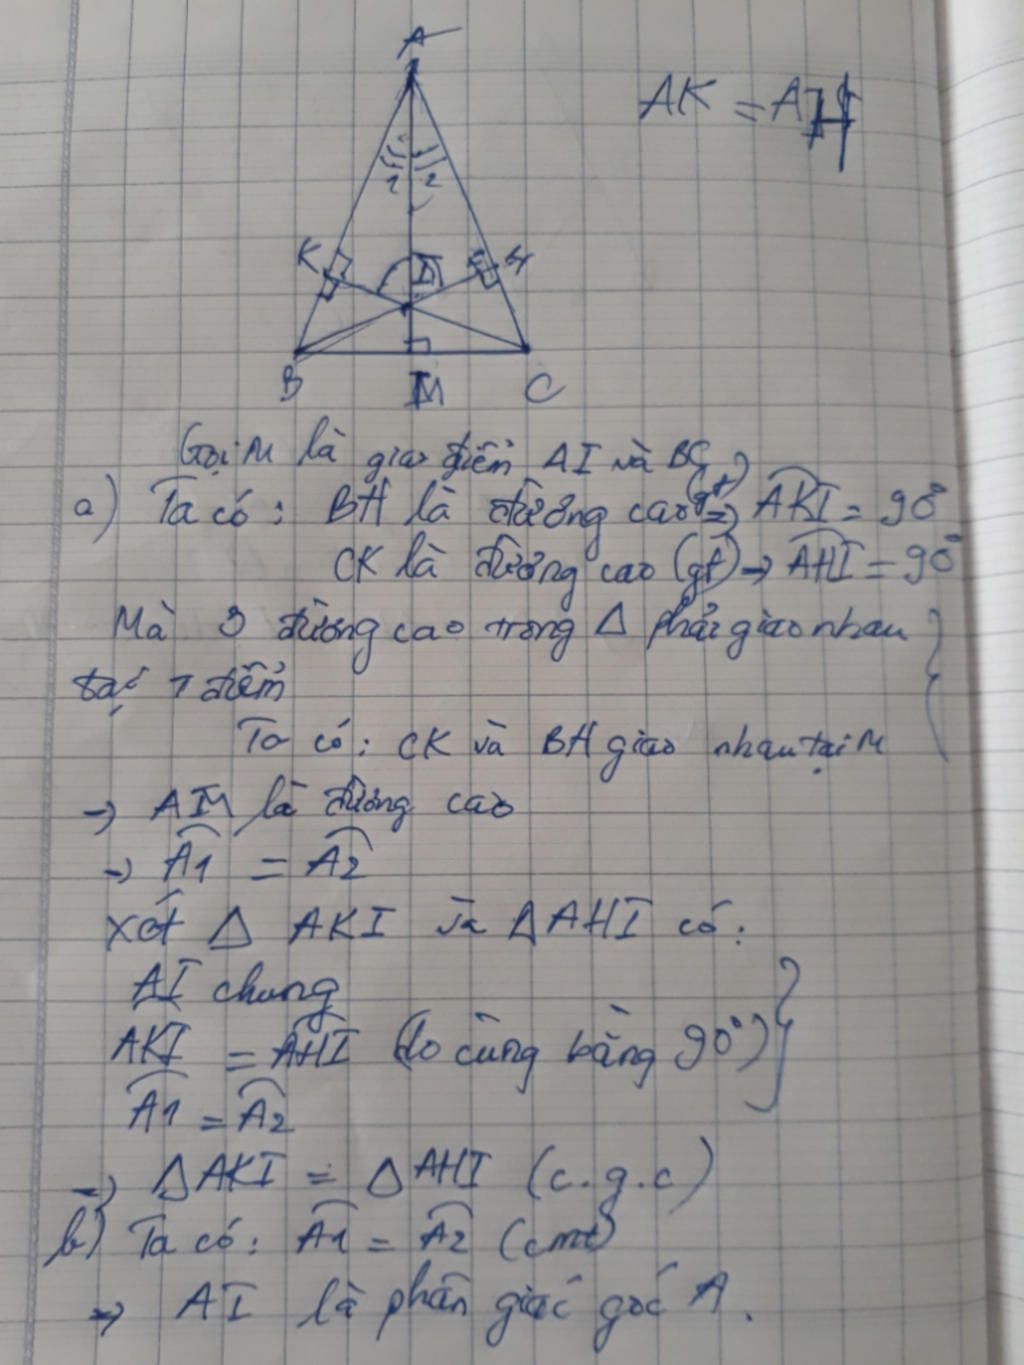 A
AK = AH
1 2
K I H
B M C
Gọi M là giao điểm AI và BC
a) Ta có: BH là đường cao (gt) => AKI = 90°
CK là đường cao (gt) -> AHI = 90°
Mà 3 đường cao trong Δ phải giao nhau
tại 1 điểm
Ta có: CK và BH giao nhau tại M
-> AM là đường cao
-> A1 = A2
Xét Δ AKI và Δ AHI có:
AI chung
AKI = AHI (do cùng bằng 90°)
A1 = A2
-> Δ AKI = Δ AHI (c.g.c)
b) Ta có: A1 = A2 (cmt)
=> AI là phân giác góc A.